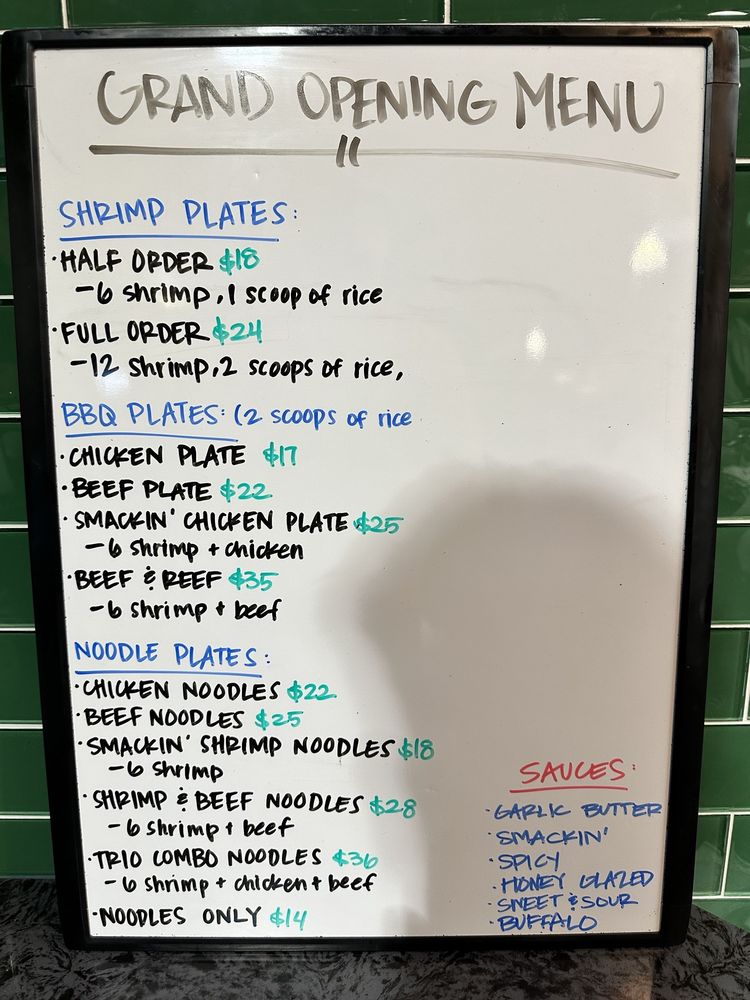 GRAND OPENING MENU
SHRIMP PLATES:
·HALF ORDER $18
-6 shrimp, 1 scoop of rice
·FULL ORDER $24
-12 shrimp, 2 scoops of rice,
BBQ PLATES: (2 scoops of rice
·CHICKEN PLATE $17
·BEEF PLATE $22
·SMACKIN' CHICKEN PLATE $25
-6 shrimp + chicken
·BEEF & REEF $35
-6 shrimp + beef
NOODLE PLATES:
·CHICKEN NOODLES $22
·BEEF NOODLES $25
·SMACKIN' SHRIMP NOODLES $18
-6 shrimp
·SHRIMP & BEEF NOODLES $28
-6 shrimp + beef
·TRIO COMBO NOODLES $36
-6 shrimp + chicken + beef
·NOODLES ONLY $14
SAUCES:
·GARLIC BUTTER
·SMACKIN'
·SPICY
·HONEY GLAZED
·SWEET & SOUR
·BUFFALO